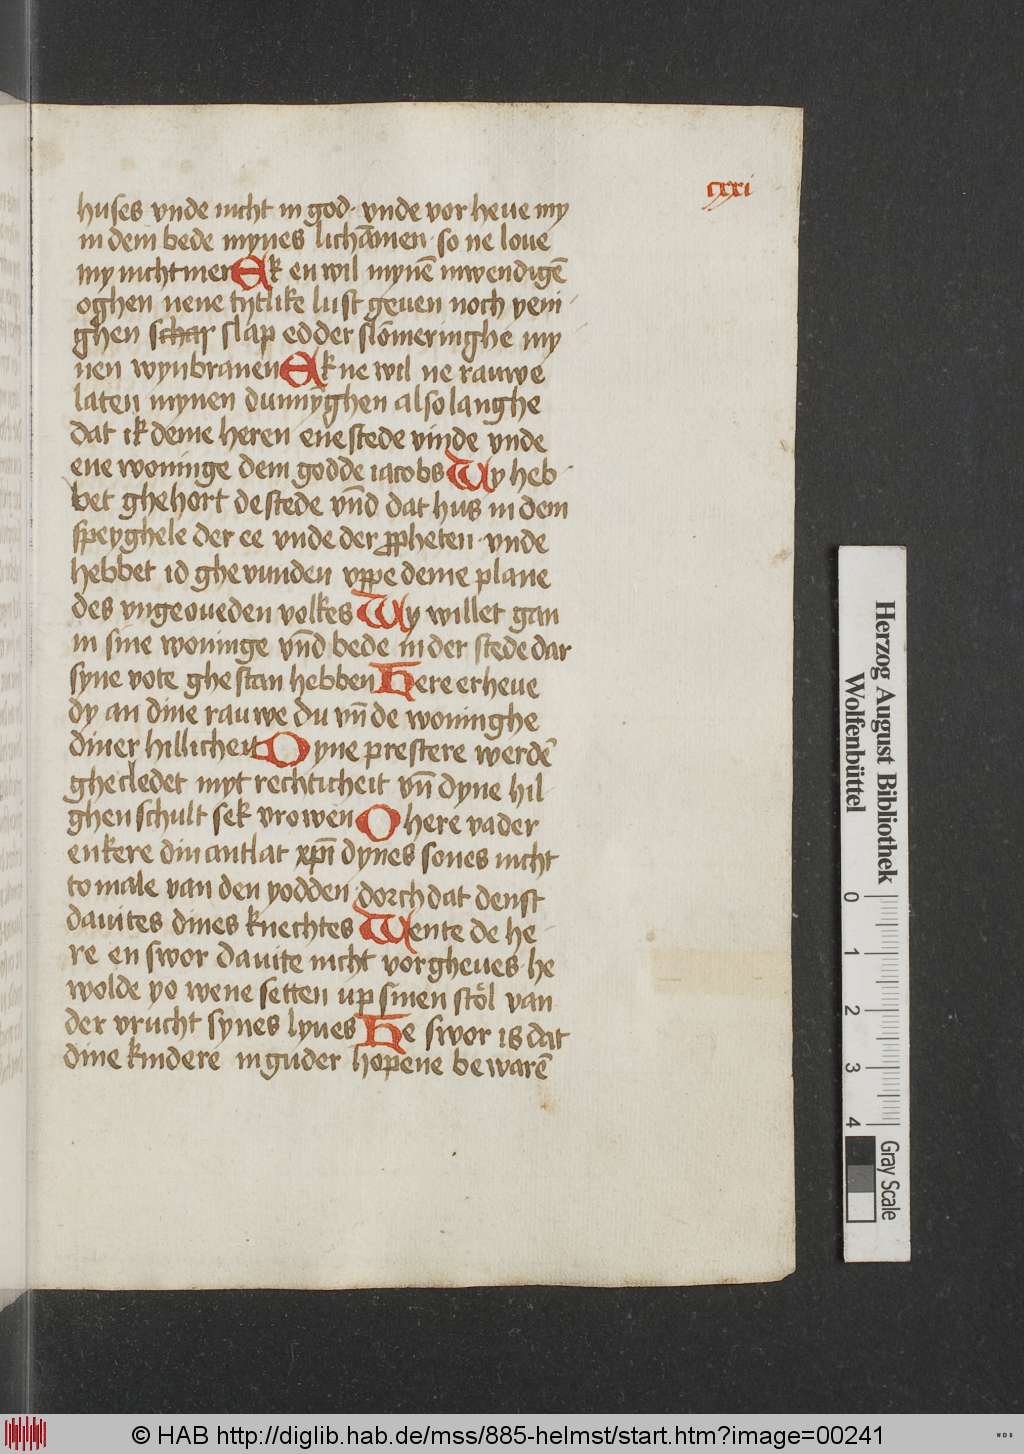 cxxi
huses vnde nicht in god · vnde vor heue my
in dem bede mynes lichāmen · so ne loue
my nicht mer Ek en wil mynē inwendigē
oghen nene tytlike lust geuen noch yeni
ghen schar slap edder slōmeringhe my
nen wynbranen Ek ne wil ne rauwe
laten mynen dunnÿghen also langhe
dat ik deme heren ene stede vinde vnde
ene woninge dem godde iacobs Wy heb
bet ghehort de stede vn̄d dat hus in dem
speyghele der ee vnde der ꝓpheten · vnde
hebbet id ghevunden vppe deme plane
des vngeoueden volkes Wy willet gan
in sine woninge vn̄d bede in der stede dar
syne vote ghe stan hebben Here erheue
dy an dine rauwe du vn̄de woninghe
diner hillicheit Dyne prestere werdē
ghecledet myt rechticheit vn̄ dyne hil
ghen schult sek vrowen O here vader
enkere din antlat xp̄i dynes sones nicht
to male van den yodden dorch dat denst
dauites dines knechtes Wente de he
re en swor dauite nicht vorgheues · he
wolde yo wene setten up sinen stol van
der vrucht synes lyues He swor is dat
dine kindere in guder hopene bewarē
Herzog August Bibliothek
Wolfenbüttel
0 1 2 3 4
Gray Scale
© HAB http://diglib.hab.de/mss/885-helmst/start.htm?image=00241